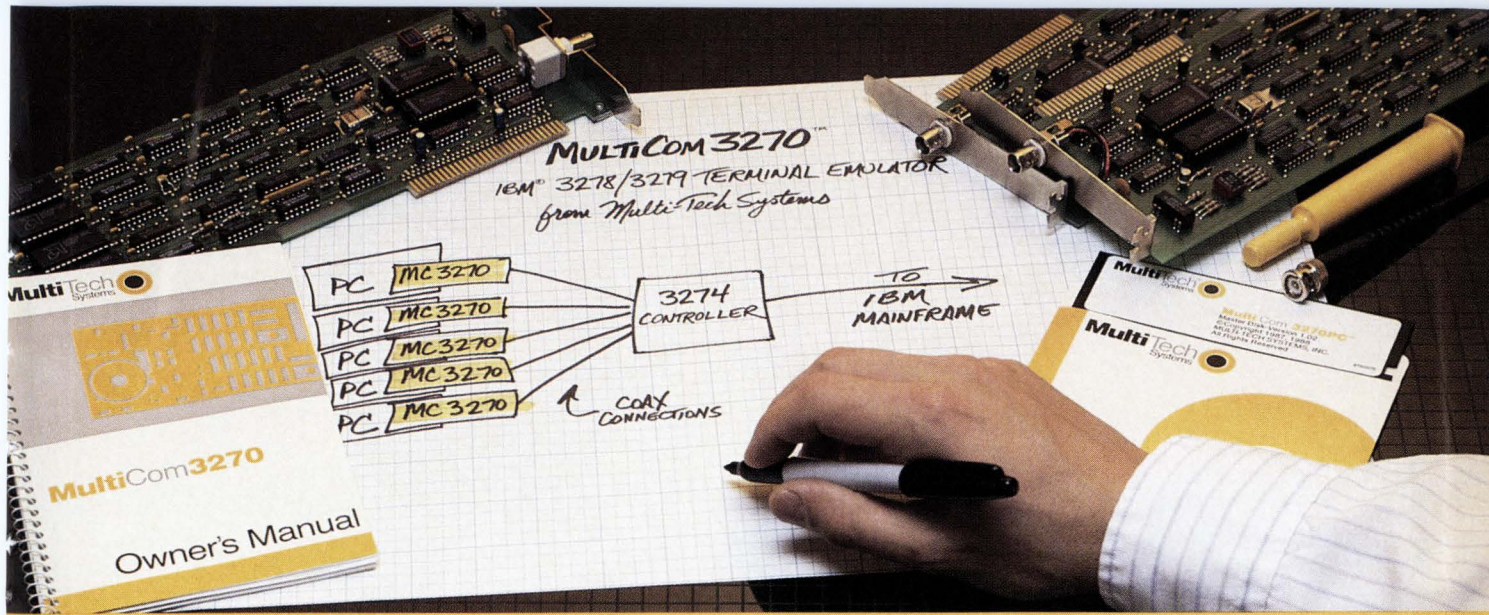 MULTICOM 3270™
IBM® 3278/3279 TERMINAL EMULATOR
from Multi-Tech Systems
PC MC 3270
PC MC 3270
PC MC 3270
PC MC 3270
PC MC 3270
3274
CONTROLLER
TO
IBM
MAINFRAME
COAX
CONNECTIONS
MultiTech
Systems
MultiCom3270
Owner's Manual
MultiTech
Systems
MultiCom 3270PC™
Master Disk-Version 1.02
©Copyright 1987, 1988
MULTI-TECH SYSTEMS, INC.
All Rights Reserved
MultiTech
Systems